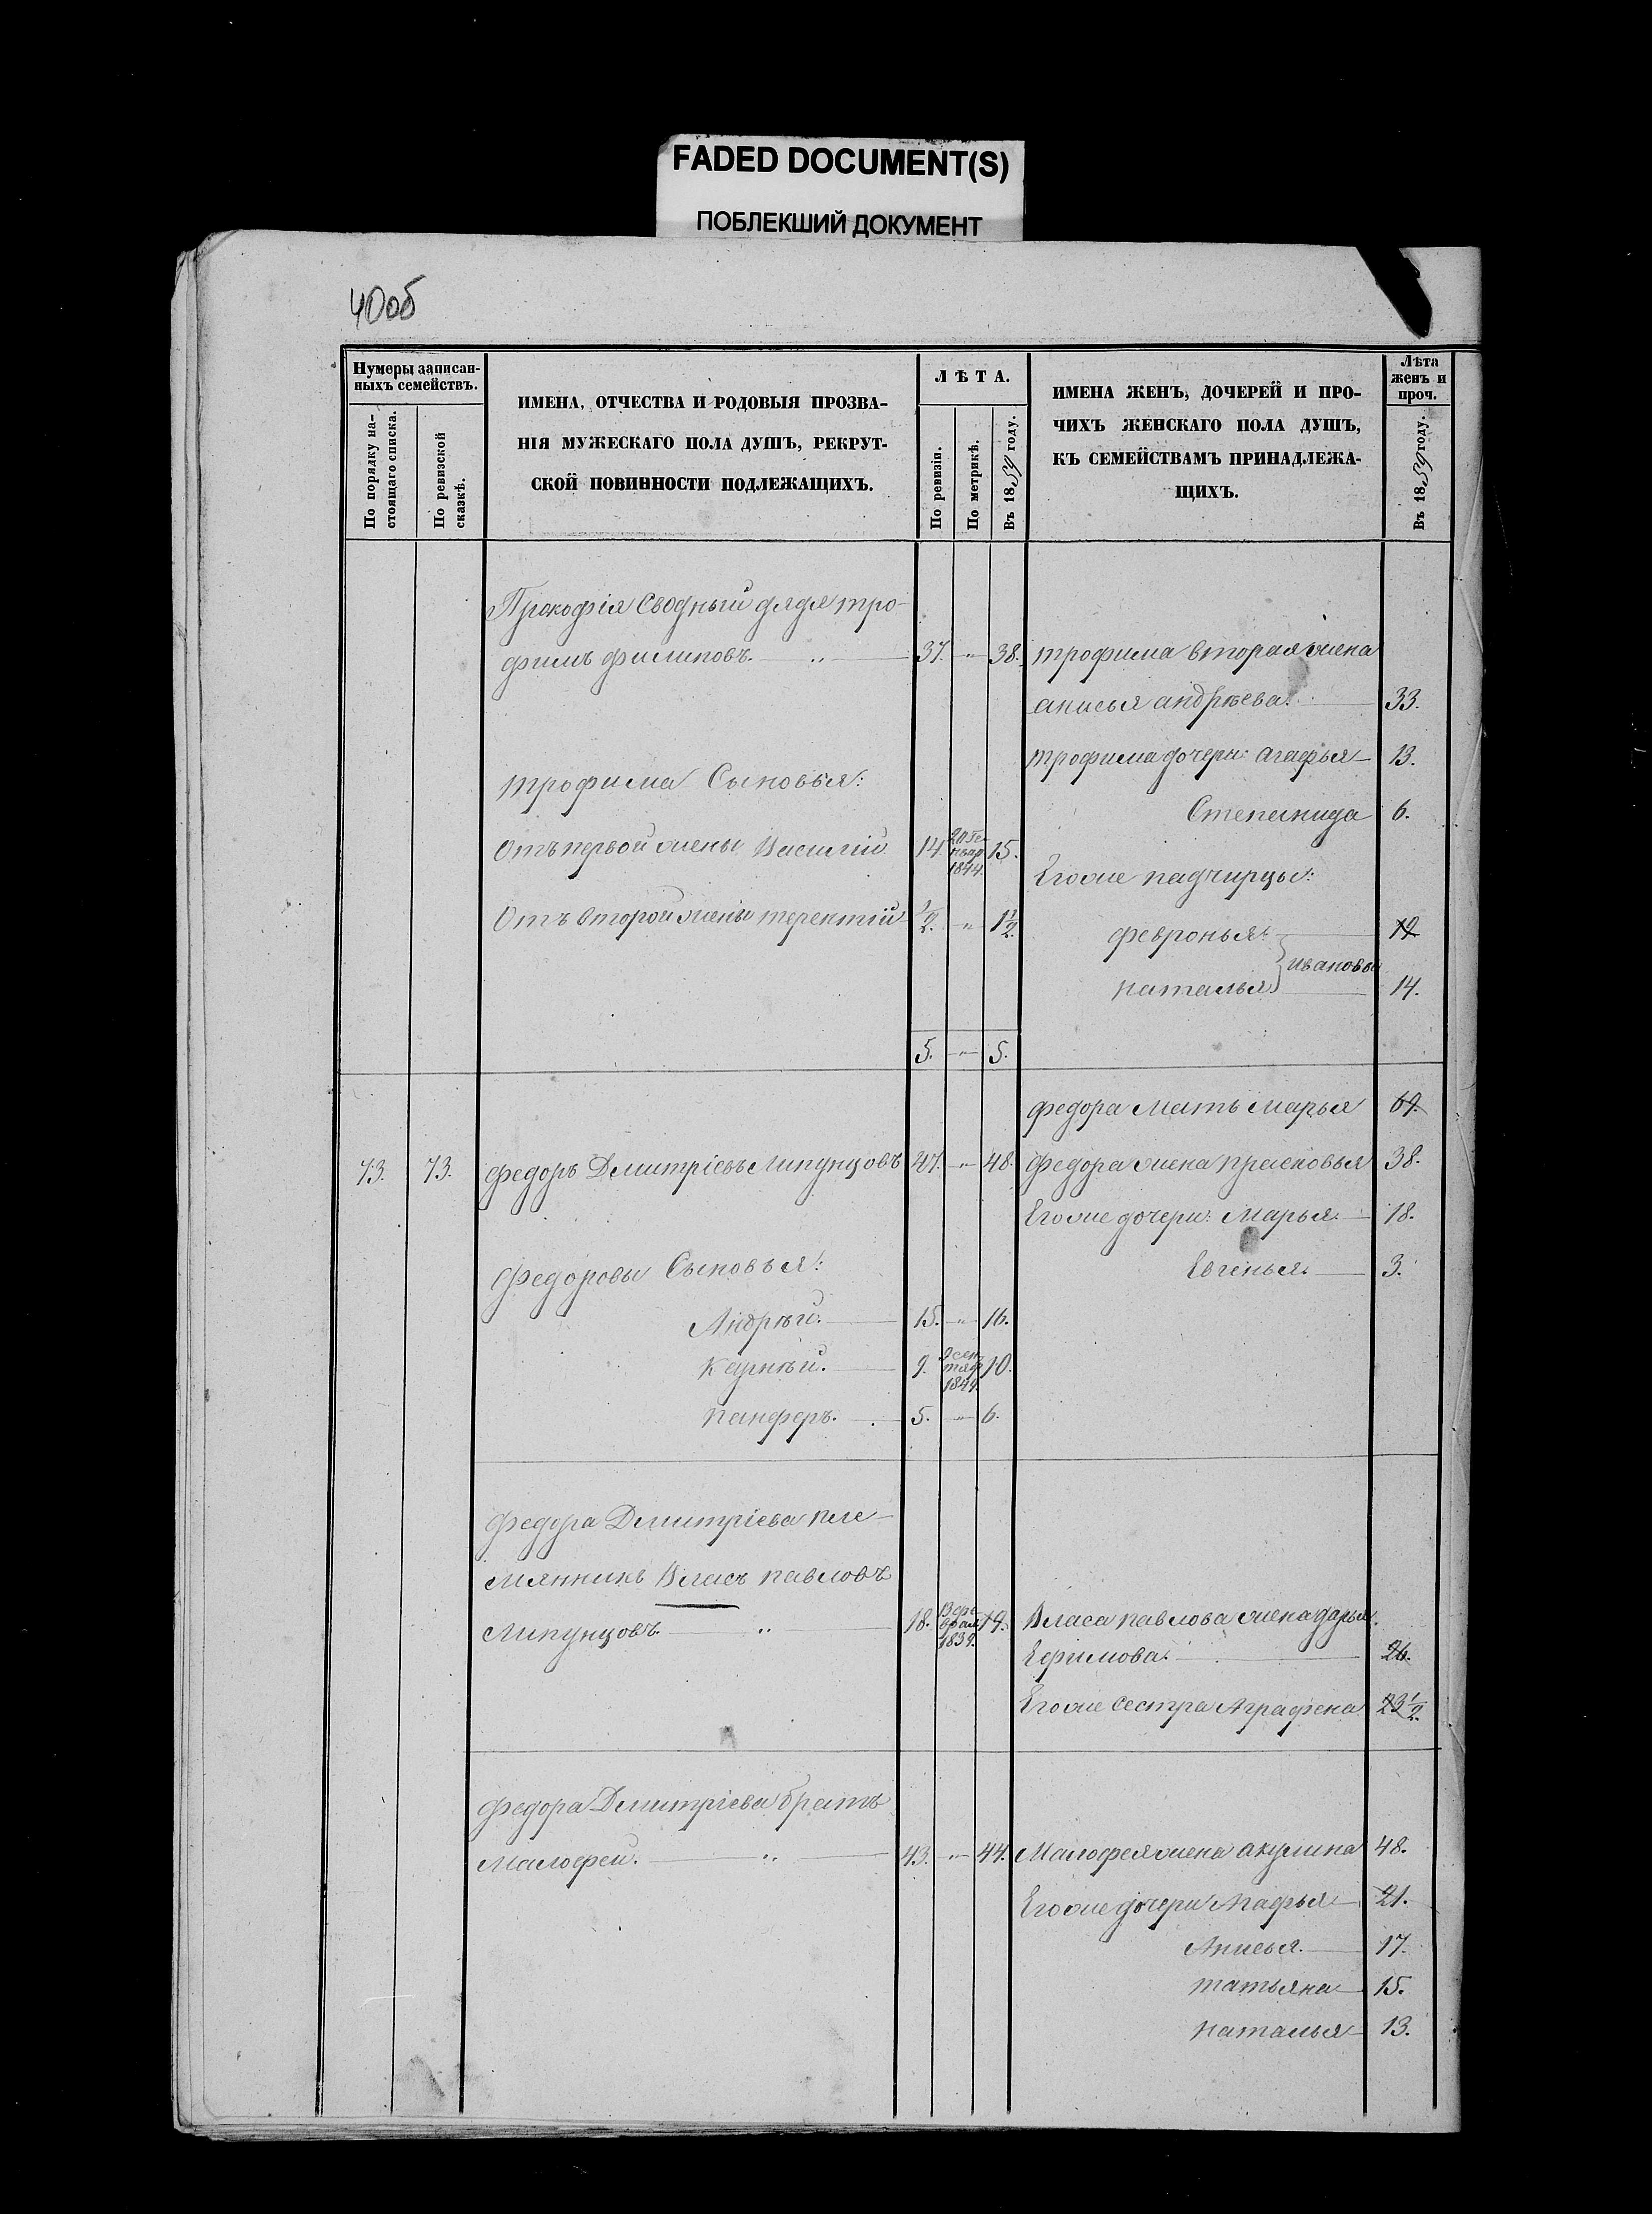 FADED DOCUMENT(S)
ПОБЛЕКШИЙ ДОКУМЕНТ
40об
Нумеры записан-
ныхъ семействъ.
По порядку на-
стоящаго списка.
По ревизской
сказкѣ.
ИМЕНА, ОТЧЕСТВА И РОДОВЫЯ ПРОЗВА-
НІЯ МУЖЕСКАГО ПОЛА ДУШЪ, РЕКРУТ-
СКОЙ ПОВИННОСТИ ПОДЛЕЖАЩИХЪ.
ЛѢТА.
По ревизіи.
По метрикѣ.
Въ 1859 году.
ИМЕНА ЖЕНЪ, ДОЧЕРЕЙ И ПРО-
ЧИХЪ ЖЕНСКАГО ПОЛА ДУШЪ,
КЪ СЕМЕЙСТВАМЪ ПРИНАДЛЕЖА-
ЩИХЪ.
Лѣта
женъ и
проч.
Въ 1859 году.
Прокофія Сводный дядя тро-
фимъ филиповъ. 37. " 38. трофима вторая жена
анисья андрѣева. 33.
трофима дочери: агафья 13.
трофима Сыновья:
Степанида 6.
Отъ первой жены Василій 14. 15.
1844.
Егоже падчирцы:
Отъ второй жены терентій 1/2. " 1 1/2.
февронья 19
ивановы
наталья 14.
5. " 5.
федора мать марья 69.
73. 73. федоръ Дмитріевъ Липунцовъ 47. " 48. федора жена прасковья 38.
Егоже дочери: Марья. 18.
федоровы Сыновья:
Евгенья. 3.
Андрѣй. 15. " 16.
Карнѣй. 9. 9 сен
тяб 10.
1849.
панферъ. 5. " 6.
федора Дмитріева пле-
мянникъ Власъ павловъ
Липунцовъ. " 18. фе
врал 19. Власа павлова жена дарья
1839.
Ефимова. 26.
Егоже сестра Аграфена 23 1/2.
федора Дмитріева братъ
Малофей. " 43. " 44. Малофея жена акулина 48.
Егоже дочери Мафья 21.
Анисья. 17.
татьяна 15.
наталья 13.